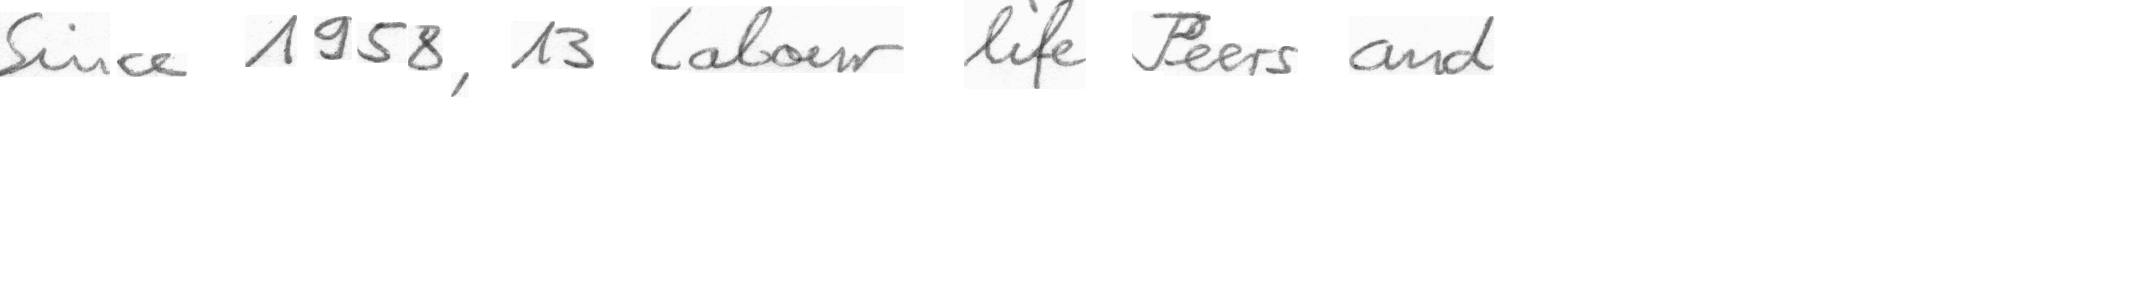 Since 1958, 13 Labour life Peers and